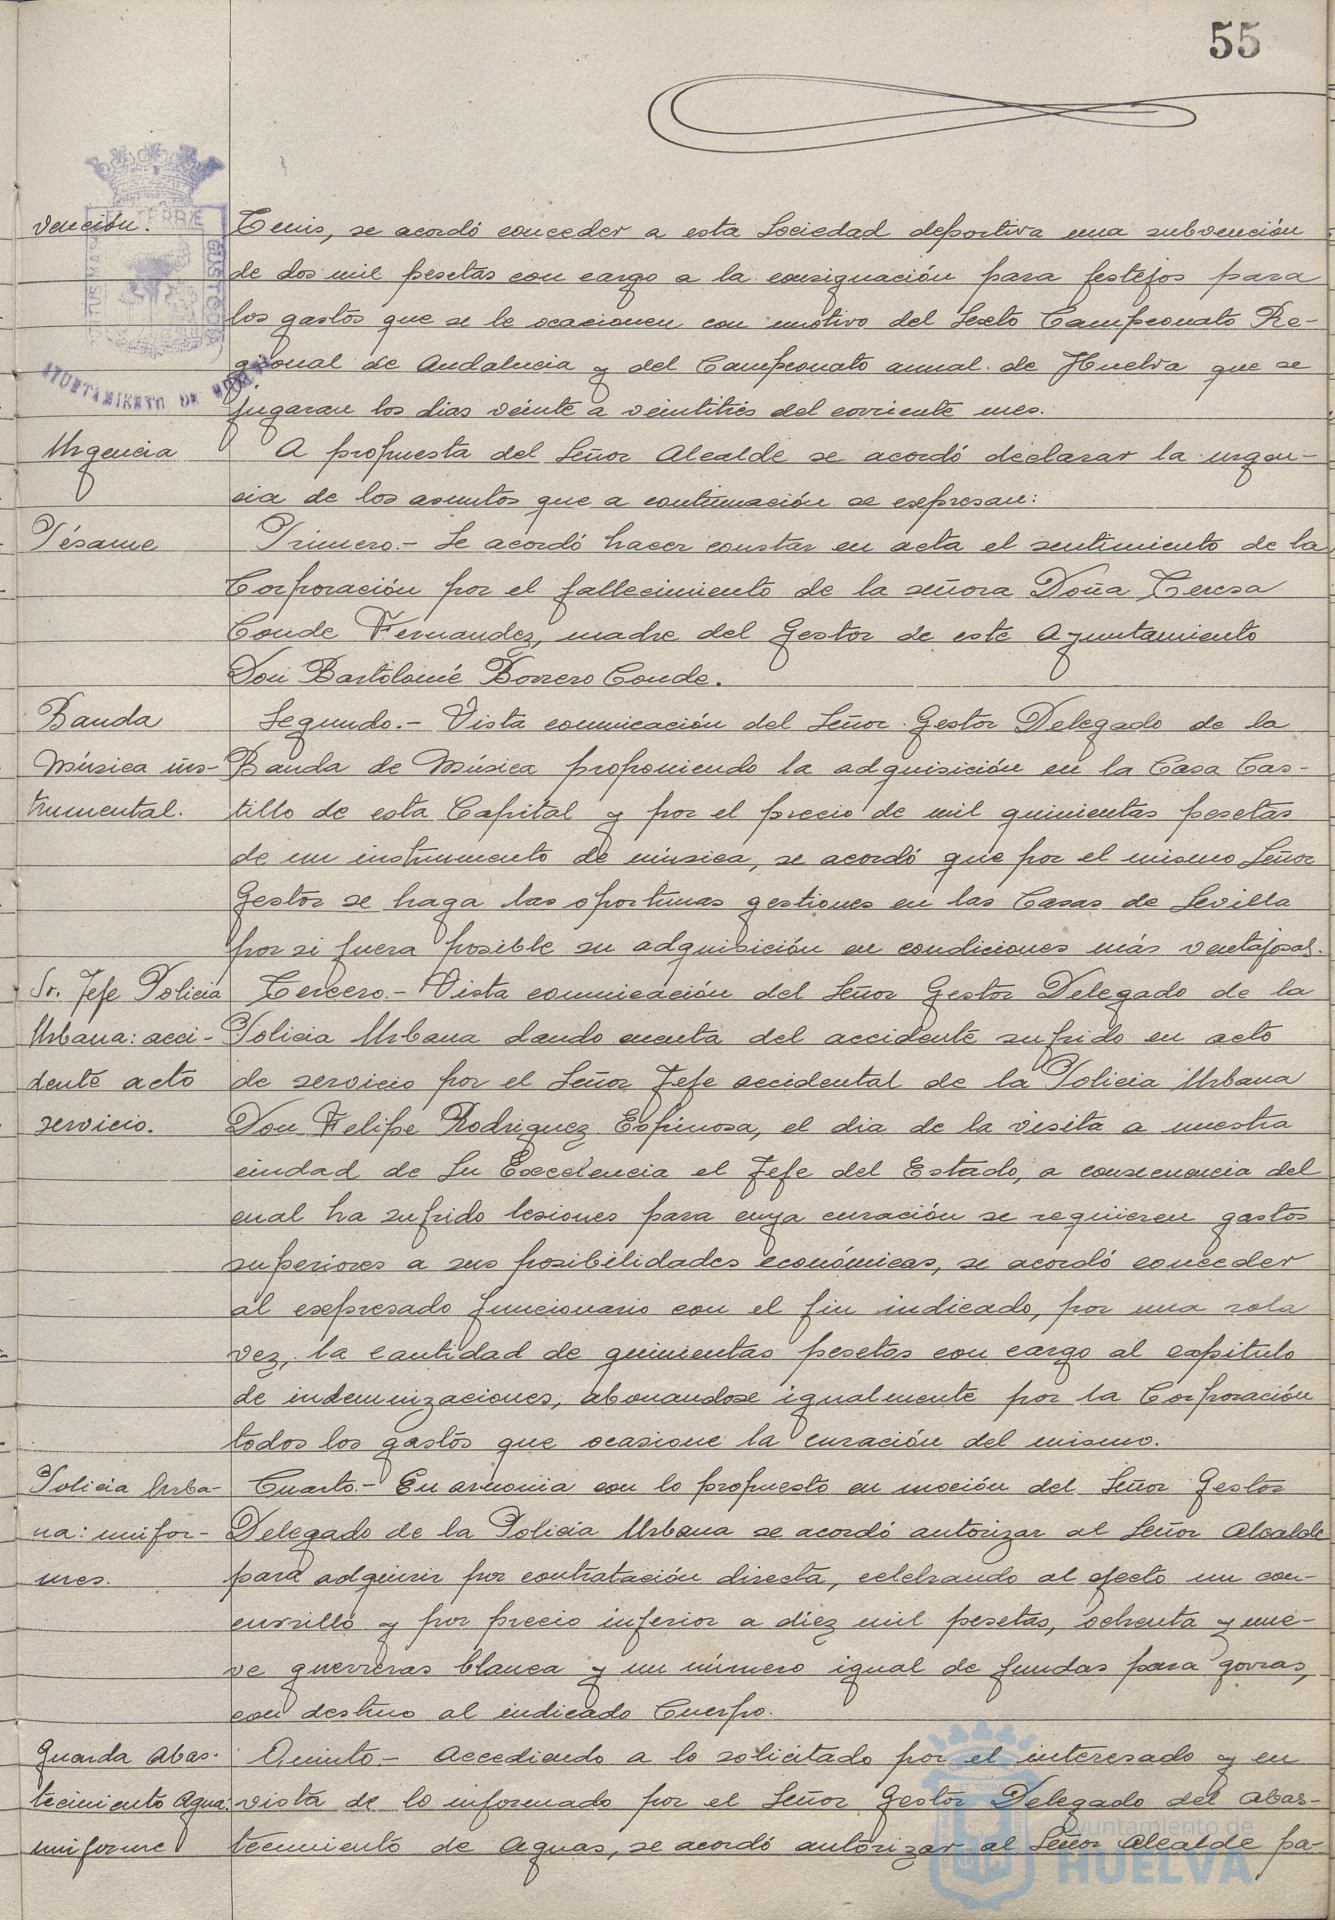 55
vención.
Tenis, se acordó conceder a esta Sociedad deportiva una subvención
de dos mil pesetas con cargo a la consignación para festejos para
los gastos que se le ocacionen con motivo del Sexto Campeonato Re-
gional de Andalucia y del Campeonato anual de Huelva que se
jugaran los dias veinte a veintitrés del corriente mes.
Urgencia
A propuesta del Señor Alcalde se acordó declarar la urgen-
cia de los asuntos que a continuación se expresan:
Pésame
Primero.- Se acordó hacer constar en acta el sentimiento de la
Corporación por el fallecimiento de la señora Doña Teresa
Conde Fernandez, madre del Gestor de este Ayuntamiento
Don Bartolomé Borrero Conde.
Banda
Música ins-
trumental.
Segundo.- Vista comunicación del Señor Gestor Delegado de la
Banda de Música proponiendo la adquisición en la Casa Cas-
tillo de esta Capital y por el precio de mil quinientas pesetas
de un instrumento de música, se acordó que por el mismo Señor
Gestor se haga las oportunas gestiones en las Casas de Sevilla
por si fuera posible su adquisición en condiciones más ventajosas.
Sr. Jefe Policia
Urbana: acci-
dente acto
servicio.
Tercero.- Vista comunicación del Señor Gestor Delegado de la
Policia Urbana dando cuenta del accidente sufrido en acto
de servicio por el Señor Jefe accidental de la Policia Urbana
Don Felipe Rodriguez Espinosa, el dia de la visita a nuestra
ciudad de Su Excelencia el Jefe del Estado, a consecuencia del
cual ha sufrido lesiones para cuya curación se requieren gastos
superiores a sus posibilidades económicas, se acordó conceder
al expresado funcionario con el fin indicado, por una sola
vez, la cantidad de quinientas pesetas con cargo al capitulo
de indemnizaciones, abonandose igualmente por la Corporación
todos los gastos que ocasione la curación del mismo.
Policia Urba-
na: unifor-
mes.
Cuarto.- En armonia con lo propuesto en moción del Señor Gestor
Delegado de la Policia Urbana se acordó autorizar al Señor Alcalde
para adquirir por contratación directa, celebrando al efecto un con-
cursillo y por precio inferior a diez mil pesetas, ochenta y nue-
ve guerreras blanca y un número igual de fundas para gorras,
con destino al indicado Cuerpo.
Guarda Abas-
tecimiento Agua:
uniforme
Quinto.- Accediendo a lo solicitado por el interesado y en
vista de lo informado por el Señor Gestor Delegado del Abas-
tecimiento de Aguas, se acordó autorizar al Señor Alcalde pa-
AYUNTAMIENTO DE HUELVA
Ayuntamiento de
HUELVA